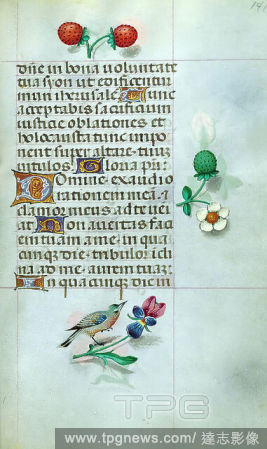 dñe in bona uoluntate
tua syon ut edificentur
muri iherusalē. Tunc
acceptabis sacrificium
iusticie oblationes et
holocausta tunc impo
nent super altare tuum
uitulos. Gloria pri.
Domine exaudi o
rationem meā et
clamor meus ad te ueni
at. Non auertas faci
em tuam a me in qua
cunqz die tribulor incli
na ad me aurem tuam.
In quacunqz die in
TPG
www.tpgnews.com / 達志影像